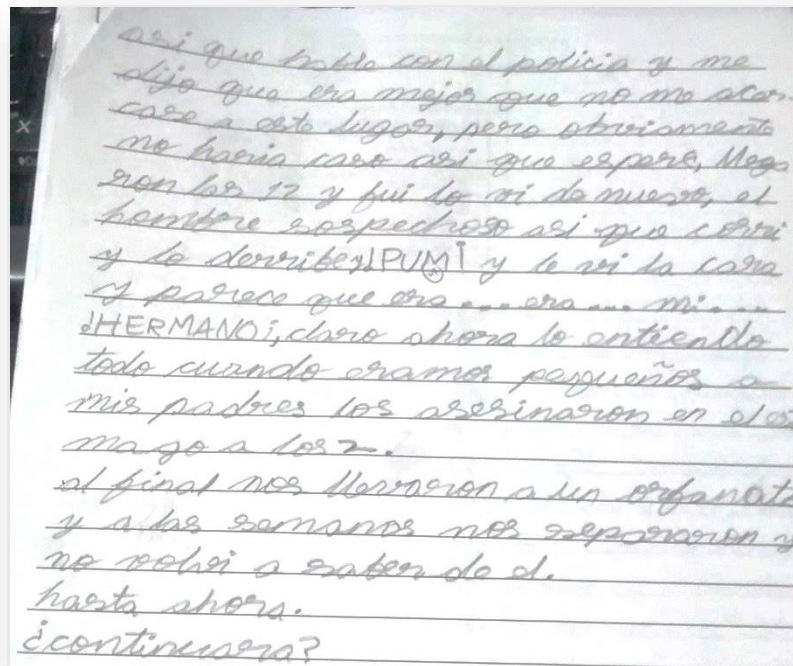 asi que hable con el policia y me
dijo que era mejor que no me acer-
case a este lugar, pero obviamente
no haria caso asi que espere, llega
ron las 12 y fui lo vi de nuevo, el
hombre sospechoso asi que corri
y lo derribe y ¡PUM! y le vi la cara
y parece que era... era... mi...
¡HERMANO!, claro ahora lo entiendo
todo cuando eramos pequeños a
mis padres los asesinaron en el es
mago a los 2.
al final nos llevaron a un orfanato
y a las semanas nos separaron y
no volvi a saber de el.
hasta ahora.
¿continuara?